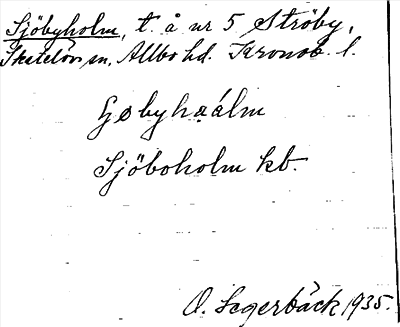 Sjöbyholm, t. å nr 5 Ströby,
Skatelöv sn, Allbo hd. Kronob. l.
Sjöboholm kb.
O. Segerbäck 1935.